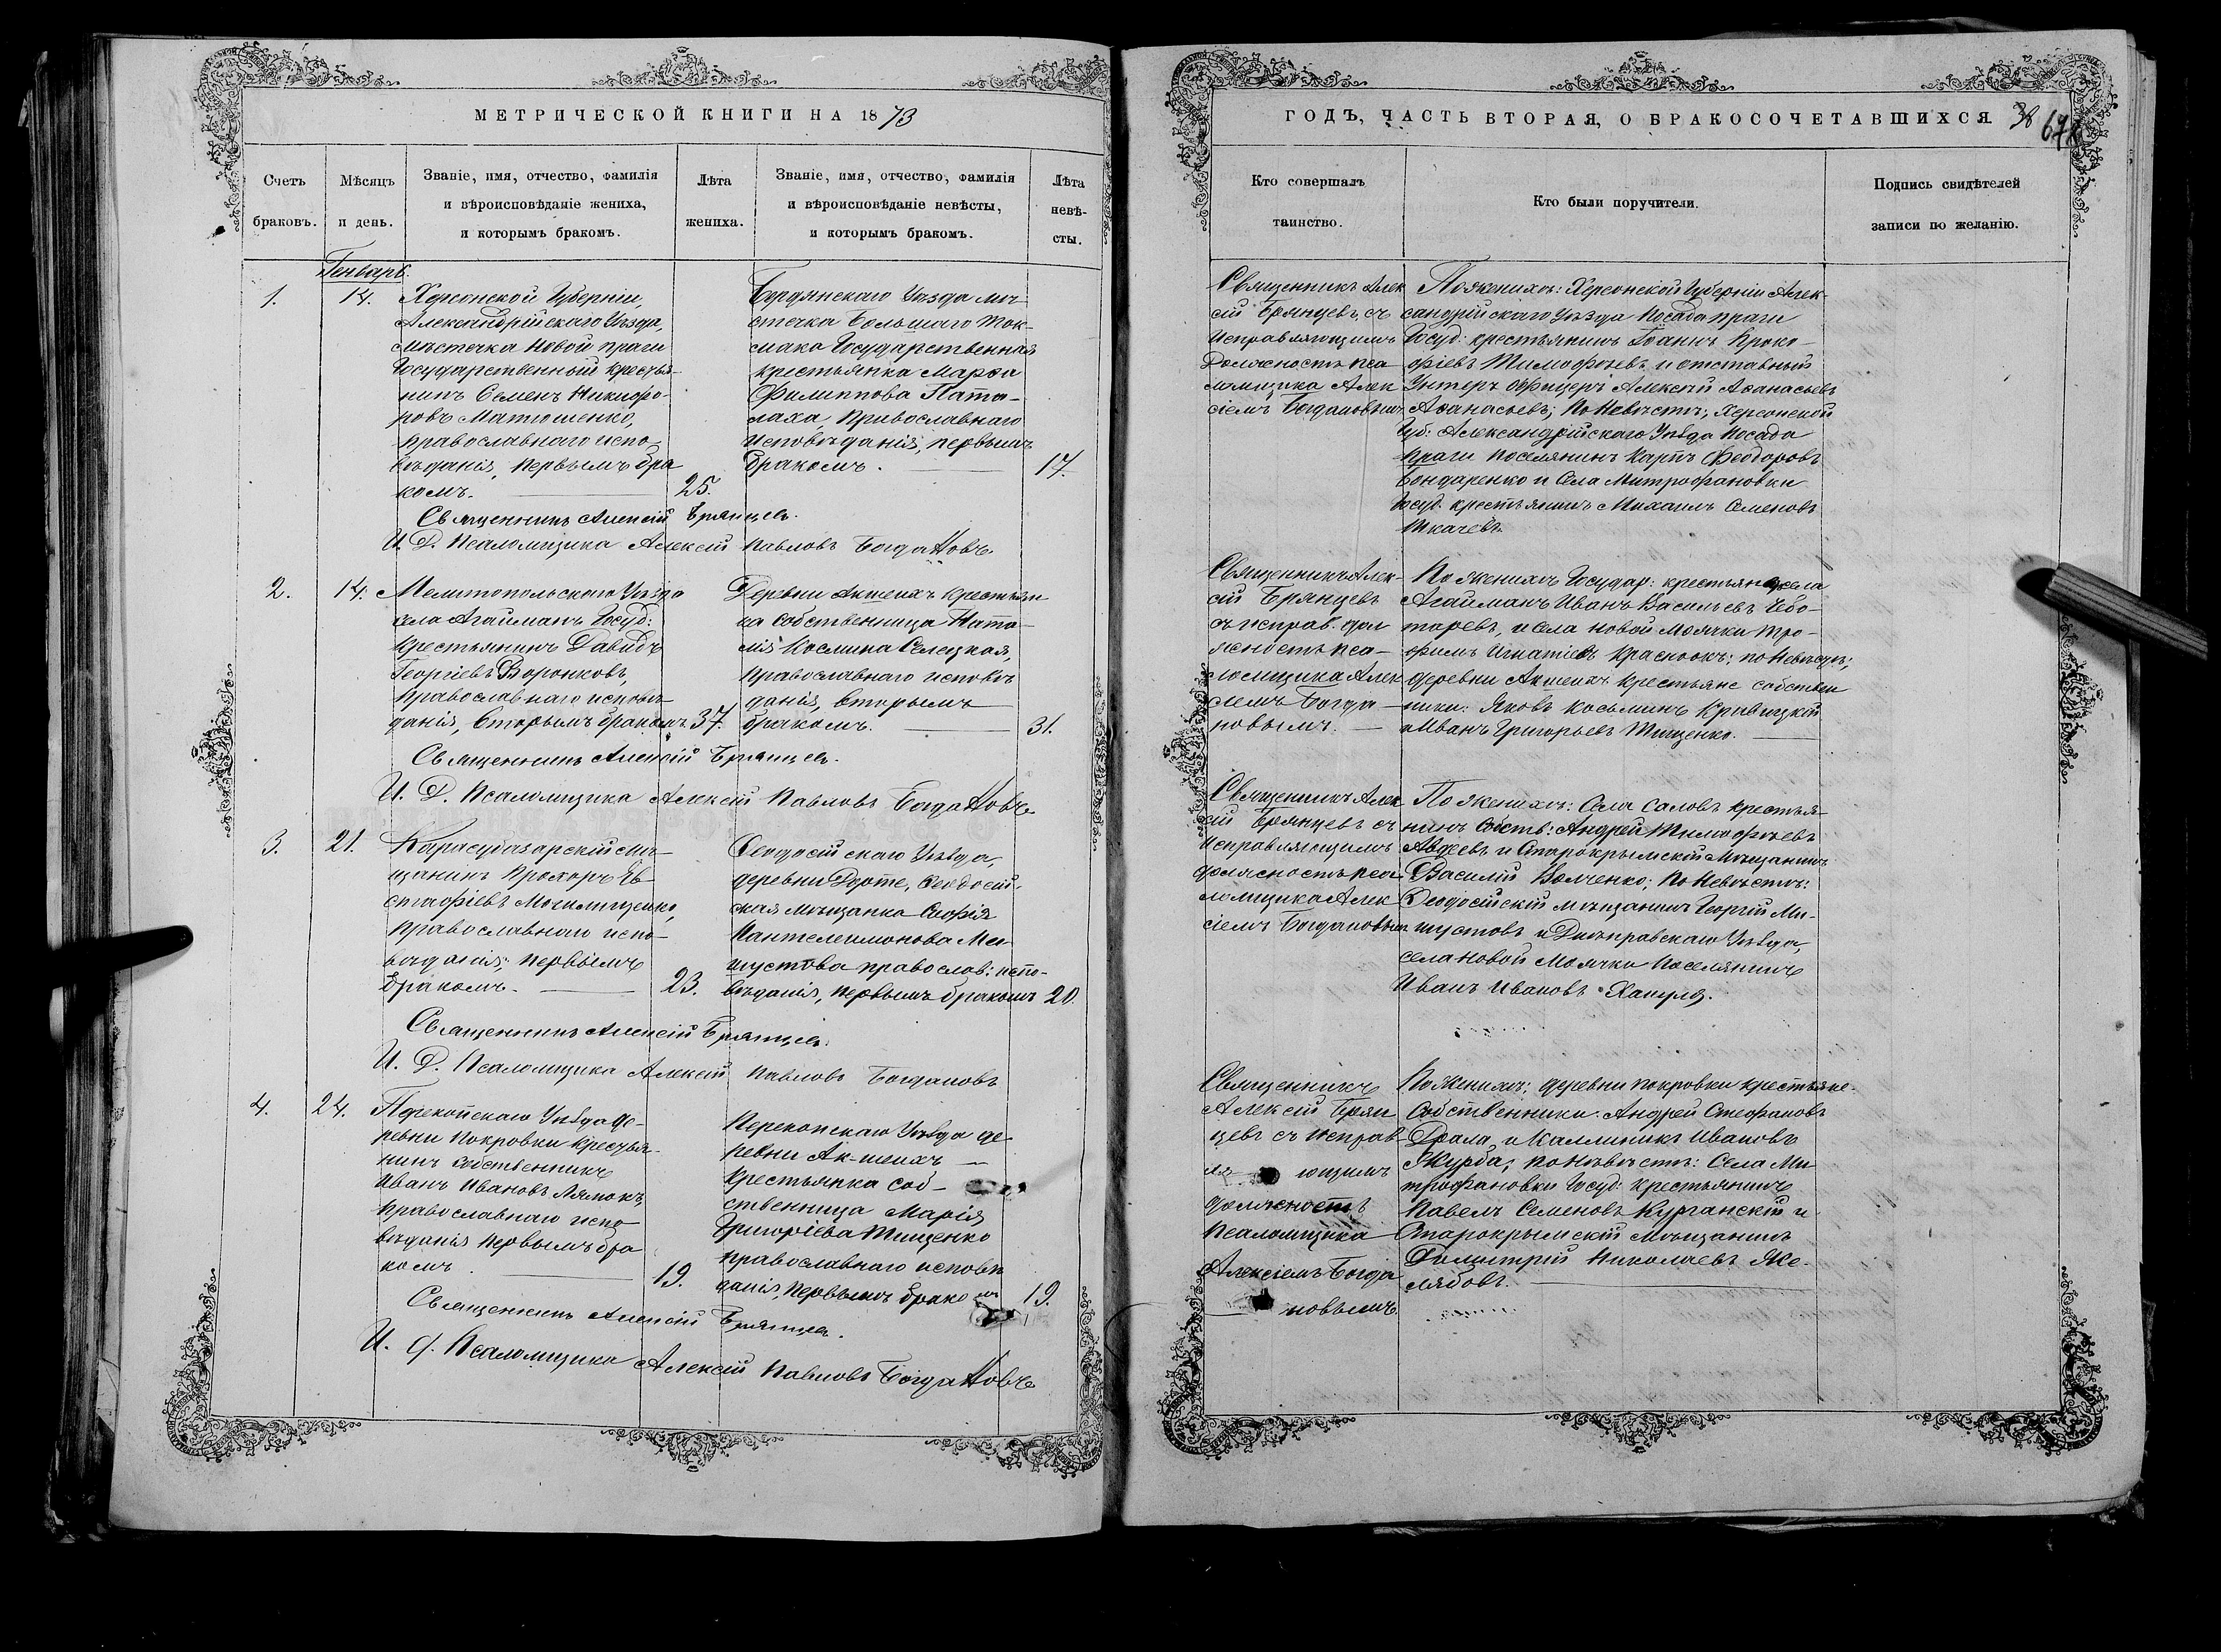 МЕТРИЧЕСКОЙ КНИГИ НА 1873
Счетъ браковъ.
Мѣсяцъ и день.
Званіе, имя, отчество, фамилія
и вѣроисповѣданіе жениха,
и которымъ бракомъ.
Лѣта жениха.
Званіе, имя, отчество, фамилія
и вѣроисповѣданіе невѣсты,
и которымъ бракомъ.
Лѣта невѣ-
сты.
Генварь.
1.
14.
Херсонской Губерніи,
Александрійскаго Уѣзда,
мѣстечка Новой праги
Государственный крестья-
нинъ Семенъ Никифо-
ровъ Матюшенко,
православнаго испо-
вѣданія, первымъ бра
комъ.
25.
Бердянскаго Уѣзда мѣ-
стечка Большаго Ток-
мака Государственная
крестьянка Марфа
Филиппова Пата-
лаха, Православнаго
исповѣданія, первымъ
бракомъ.
17.
Священникъ Алексій Брянцевъ.
И. Д. Псаломщика Алексій Павловъ Богдановъ
2.
14.
Мелитопольскаго Уѣзда
села Агайманъ Госуд:
Крестьянинъ Давидъ
Георгіевъ Воронковъ,
православнаго исповѣ-
данія, вторымъ бракомъ
37.
Деревни Акшеихъ крестьян-
ка собственница Ната-
лія Космина Селецкая,
православнаго исповѣ
данія, вторымъ
бракомъ.
31.
Священникъ Алексій Брянцевъ.
И. Д. Псаломщика Алексій Павловъ Богдановъ
3.
21.
Карасубазарскій мѣ-
щанинъ Прохоръ Ев-
стафіевъ Могилищенко,
православнаго испо-
вѣданія, первымъ
бракомъ.
23.
Ѳеодосійскаго Уѣзда,
деревни Дорте, Ѳеодосій-
ская мѣщанка Софія
Пантелеимонова Ми
шустова правослов: испо-
вѣданія, первымъ бракомъ
20.
Священникъ Алексій Брянцевъ.
И. Д. Псаломщика Алексій Павловъ Богдановъ
4.
24.
Перекопскаго Уѣзда де-
ревни Покровки крестья-
нинъ собственникъ
Иванъ Ивановъ Лямокъ,
православнаго испо
вѣданія первымъ бра
комъ
19.
Перекопскаго Уѣзда де
ревни Ак-шеихъ
Крестьянка соб-
ственница Марія
Григоріева Тищенко
православнаго исповѣ
данія, первымъ бракомъ
19.
Священникъ Алексій Брянцевъ.
И. д. Псаломщика Алексій Павловъ Богдановъ
ГОДЪ, ЧАСТЬ ВТОРАЯ, О БРАКОСОЧЕТАВШИХСЯ.
38
Кто совершалъ
таинство.
Кто были поручители.
Подпись свидѣтелей
записи по желанію.
Священникъ Алек
сій Брянцевъ, съ
исправляющимъ
Должность пса
ломщика Алек
сіемъ Богдановымъ
По женихѣ: Херсонской Губерніи Алек-
сандрійскаго Уѣзда посада праги
Госуд: крестьянинъ Іоаннъ Проко-
фіевъ Тимофѣевъ и отставный
Унтеръ Офицеръ Алексѣй Афанасьевъ
Афанасьевъ; по Невѣстѣ: Херсонской
Губ: Александрійскаго Уѣзда посада
праги поселянинъ Карпъ Феодоровъ
Бондаренко и села Митрофановки
Госуд: крестьянинъ Михаилъ Семеновъ
Ткачевъ.
Священникъ Алек-
сій Брянцевъ
съ исправ. дол
жность пса-
ломщика Алек
сіемъ Богда-
новымъ.
По женихѣ Государ: крестьяне села
Агайманъ Иванъ Васильевъ Чебо-
таревъ, и села новой Моячки Тро-
фимъ Игнатіевъ Красноокъ; по Невѣстѣ;
деревни Акшеихъ крестьяне собствен
ники: Яковъ Косьминъ Кривицкій
и Иванъ Григорьевъ Тищенко.
Священникъ Алек
сій Брянцевъ съ
исправляющимъ
должность пса
ломщика Алек
сіемъ Богдановымъ
По женихѣ: Села Саловъ крестья-
нинъ Собств: Андрей Тимофѣевъ
Авдеевъ и Старокрымскій мѣщанинъ
Василій Волченко; по Невѣстѣ:
Ѳеодосійскій мѣщанинъ Георгій Ми-
шустовъ и Днѣпровскаго Уѣзда,
села новой Моячки поселянинъ
Иванъ Ивановъ Хануля.
Священникъ
Алексій Брян
цевъ съ исправ
ля ющимъ
должность
псаломщика
Алексіемъ Богда
новымъ
По женихѣ: деревни покровки крестьяне
Собственники: Андрей Стефановъ
Драла и Каллиникъ Ивановъ
Журба; по невѣстѣ: Села Ми
трофановки Госуд: крестьянинъ
Павелъ Семеновъ Курганскій и
Старокрымскій мѣщанинъ
Димитрій Николаевъ Же-
лябовъ.